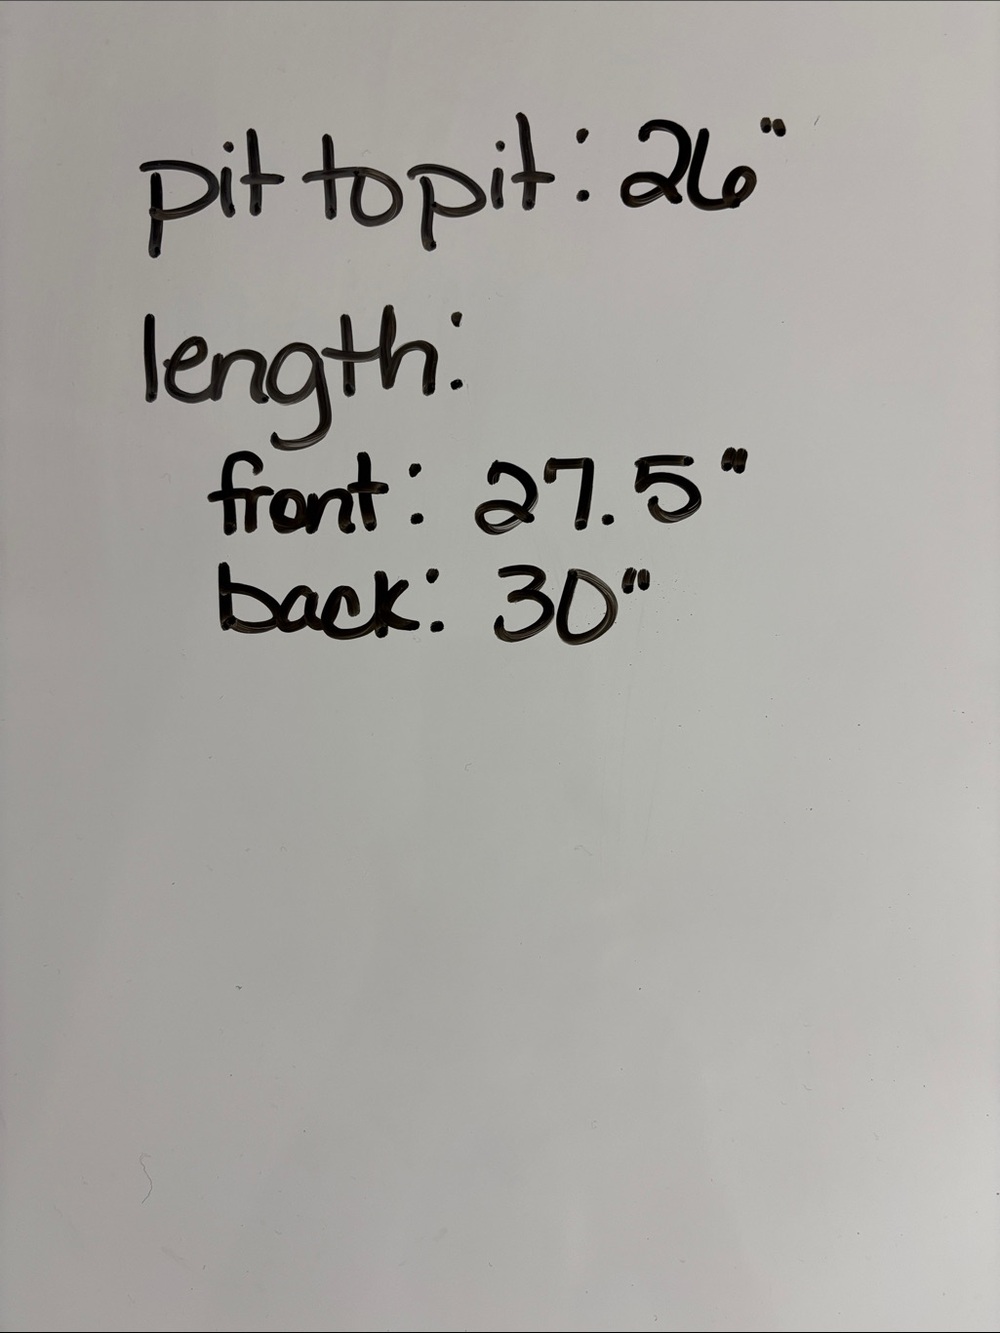 pit to pit: 26"
length:
front: 27.5"
back: 30"